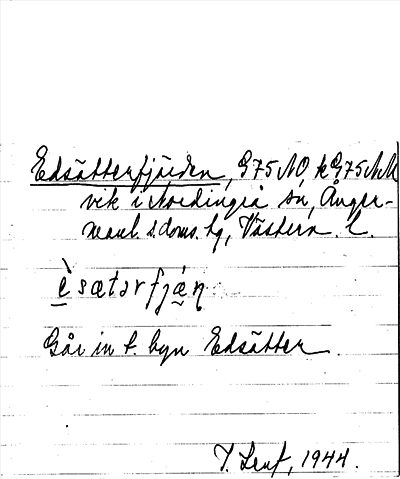 Edsätterfjärden, G75 NO, k G75 NM
vik i Nordingrå sn, Ånger-
manl. s. doms. hg, Västern. l.
èsætərfjáṇ
Går in t. byn Edsätter.
1944.